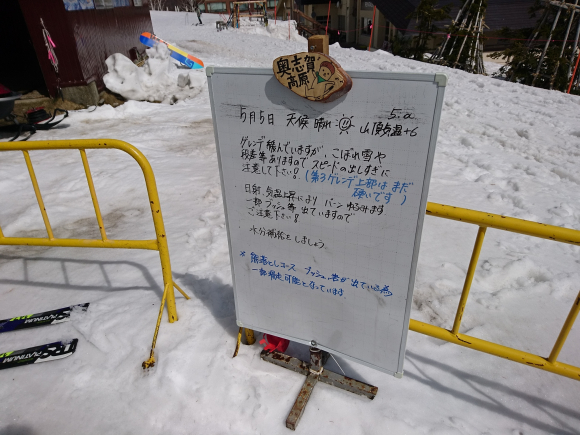 奥志賀
高原
5月5日 天候 晴れ 山頂気温+6
ゲレンデ 緩んでいますが、こぼれ雪や
段差等ありますので スピードの出しすぎに
注意して下さい! (第3ゲレンデ上部は まだ
硬いです)
日射、気温上昇により バーン ゆるみます
一部 ブッシュ等 出ていますので
ご注意下さい!
水分補給をしましょう
※熊落としコース ブッシュ、岩が出ている為
一部滑走可能となっています
PLATINUM
PLATINUM